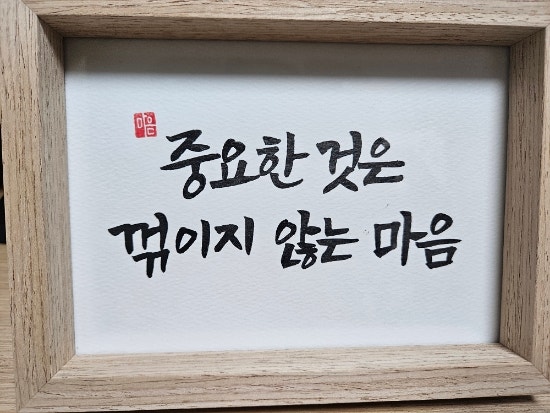 마음
중요한 것은
꺾이지 않는 마음